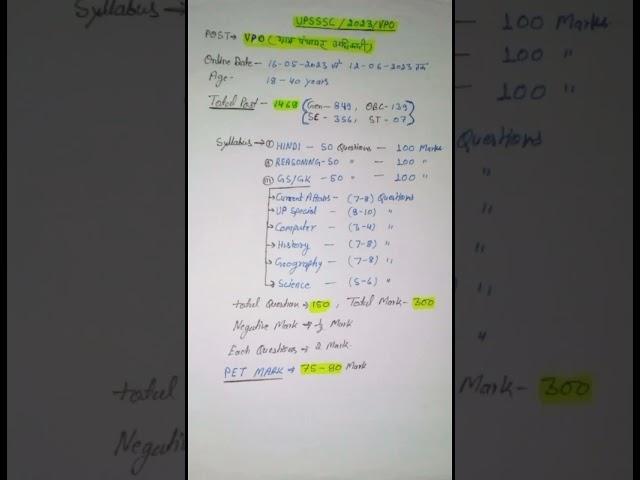 UPSSSC / 2023/VPO
POST→ VPO (ग्राम पंचायत अधिकारी)
Online Date - 16-05-2023 से 12-06-2023 तक
Age - 18-40 years
Total Post - 1468 (Gen - 849, OBC-139
SE - 356, ST - 07)
Syllabus → (I) HINDI - 50 Questions - 100 Marks
(II) REASONING-50 " - 100 "
(III) GS/GK - 50 " - 100 "
→Current Affairs - (7-8) Questions
→UP Special - (8-10) "
→Computer - (3-4) "
→History - (7-8) "
→Geography - (7-8) "
→Science - (5-6) "
total Question → 150, Total Mark- 300
Negative Mark → Mark
Each Questions → 2 Mark.
PET MARK → 75-80 Mark